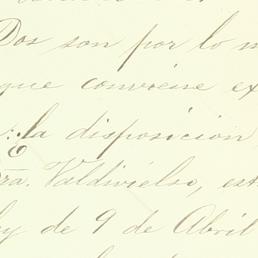 Dos son por lo m
que conviene ex
: la disposicion
ra. Valdivielso, est
ey de 9 de Abril